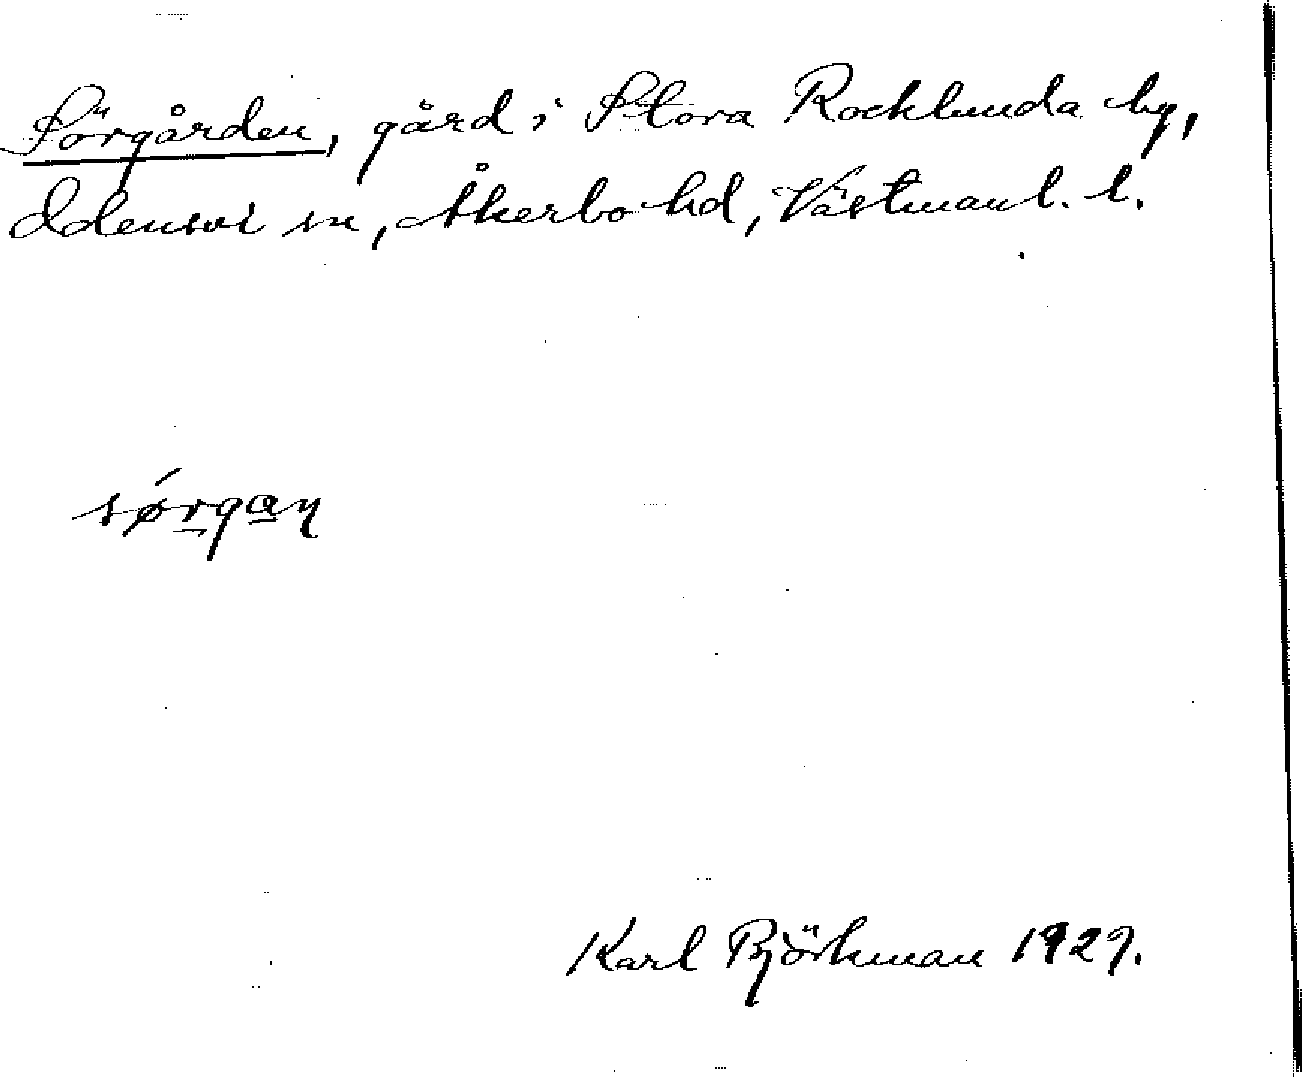 Sörgården, gård i Stora Rocklunda by,
Odensvi sn, Åkerbo hd, Västmanl. l.
sǿrga̲ŋ
Karl Björkman 1929.